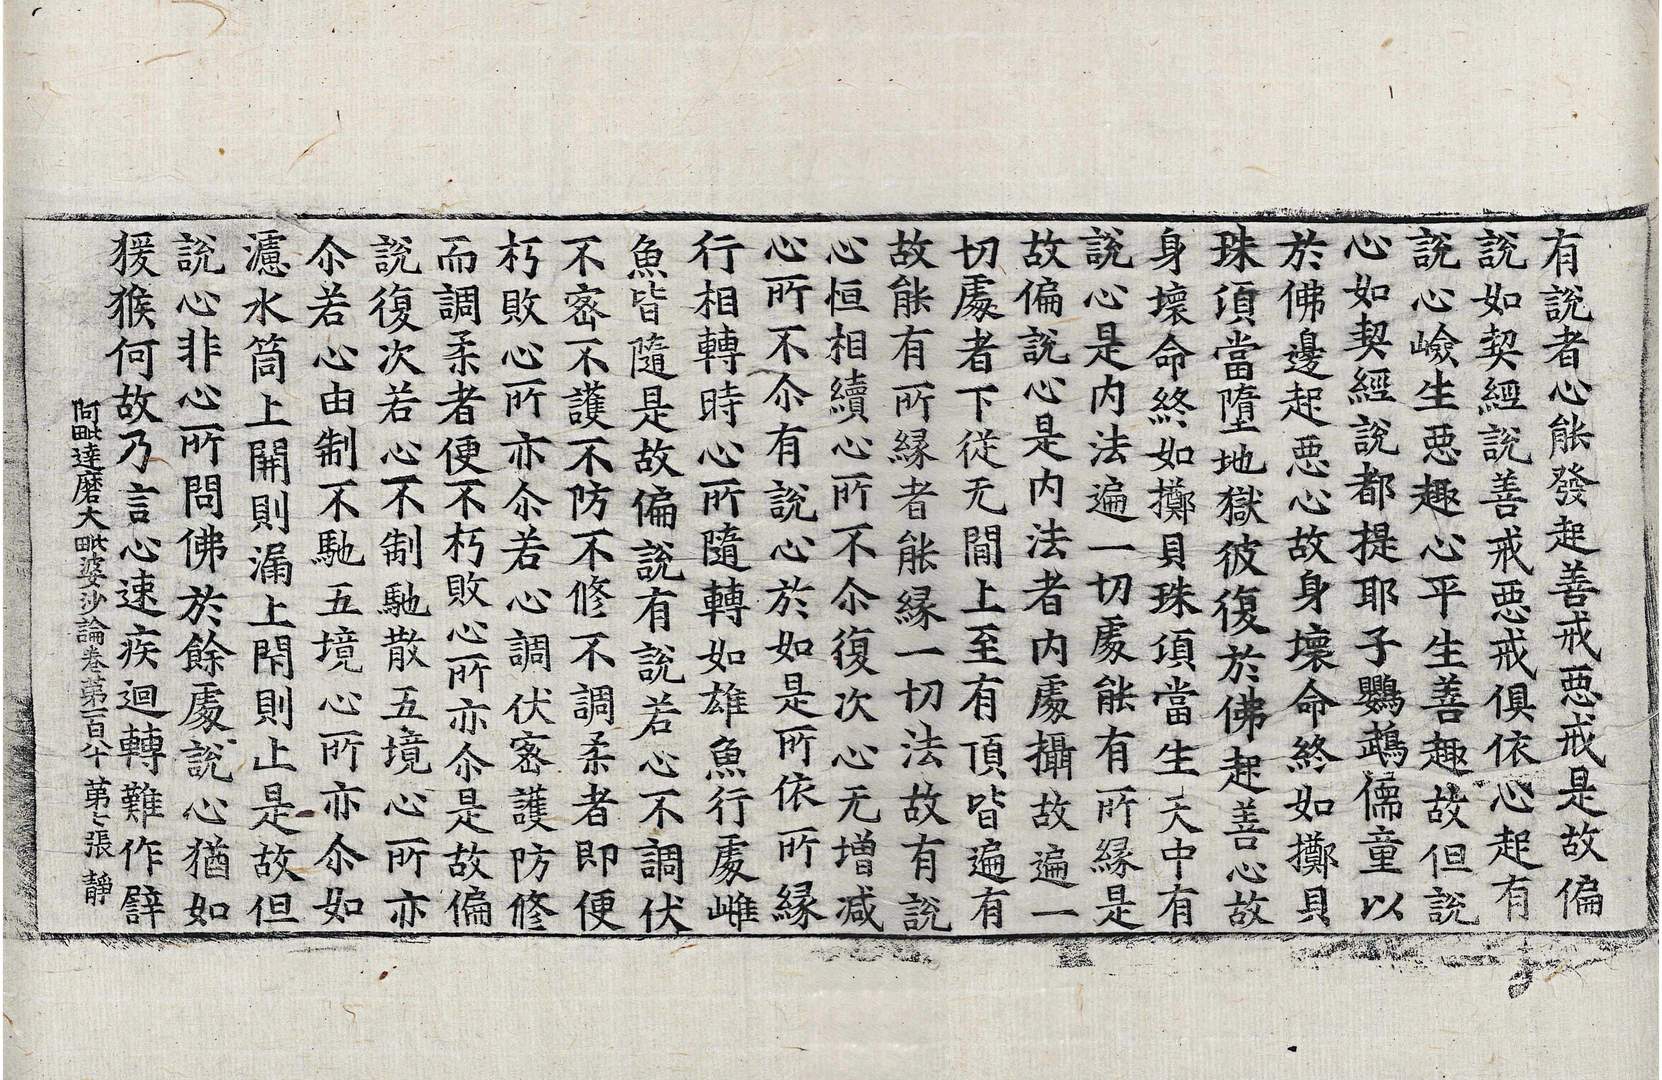 有說者心能發起善戒悪戒是故偏
說如契經說善戒悪戒俱依心起有
說心嶮生悪趣心平生善趣故但說
心如契經說都提耶子鸚鵡儒童以
於佛邊起悪心故身壞命終如擲貝
珠頂當墮地獄彼復於佛起善心故
身壞命終如擲貝珠頂當生天中有
說心是内法遍一切處能有所縁是
故偏說心是内法者内處攝故遍一
切處者下從无間上至有頂皆遍有
故能有所縁者能縁一切法故有說
心恒相續心所不尒復次心无增减
心所不尒有說心於如是所依所縁
行相轉時心所隨轉如雄魚行處雌
魚皆隨是故偏說有說若心不調伏
不密不護不防不修不調柔者即便
朽敗心所亦尒若心調伏密護防修
而調柔者便不朽敗心所亦尒是故偏
說復次若心不制馳散五境心所亦
尒若心由制不馳五境心所亦尒如
濾水筒上開則漏上閇則止是故但
說心非心所問佛於餘處說心猶如
猨猴何故乃言心速疾迴轉難作譬
阿毗達磨大毗婆沙論卷第一百八十 第七張 靜